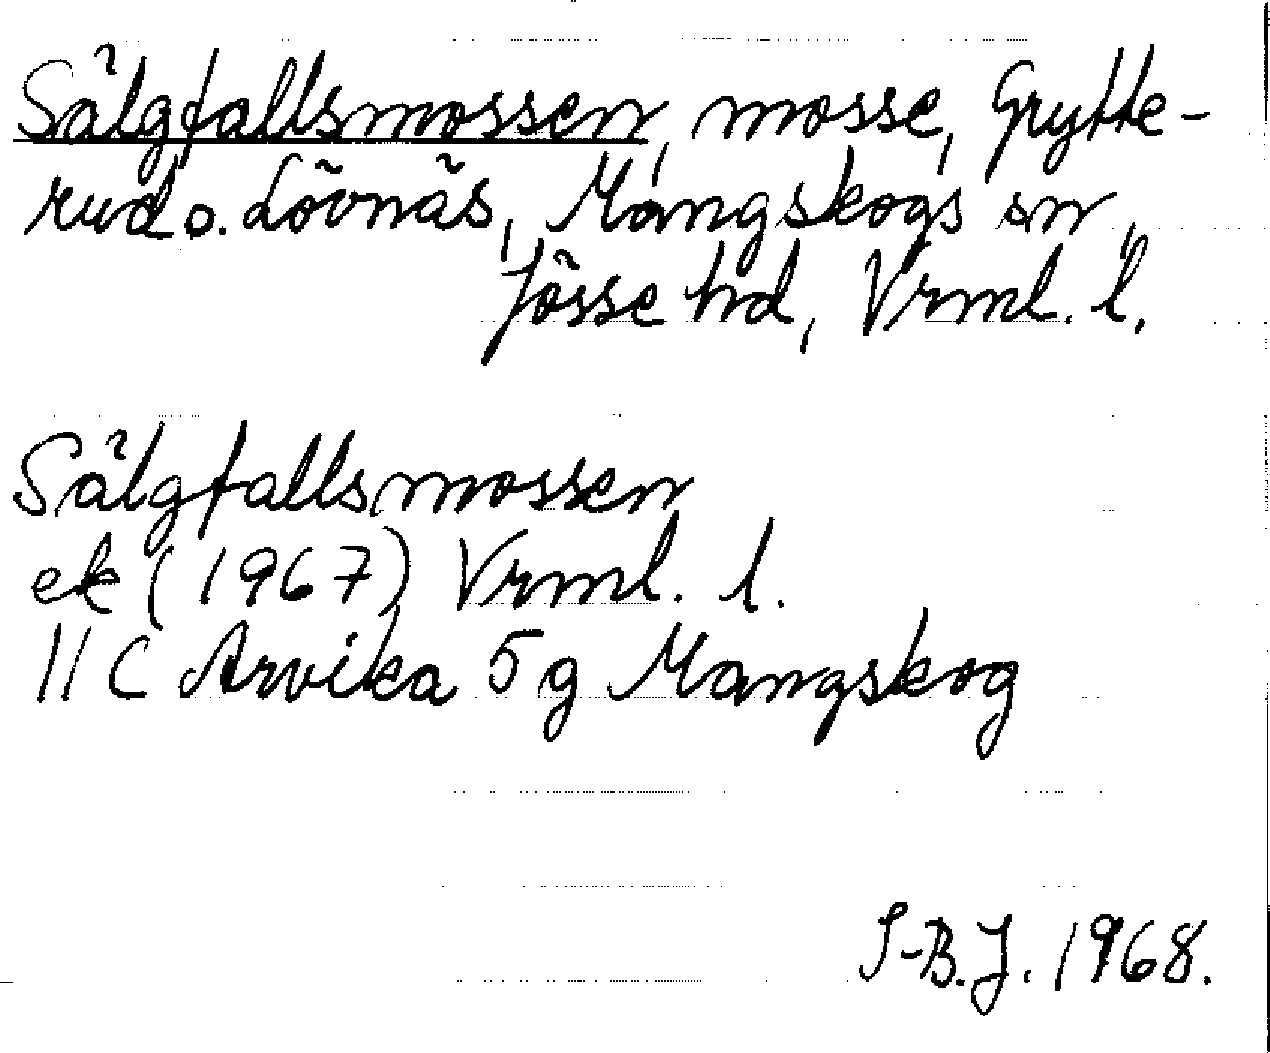 Sälgfallsmossen, mosse, Grytte-
rud o. Lövnäs, Mangskogs sn,
Jösse hd, Vrml. l.
Sälgfallsmossen
ek (1967) Vrml. l.
11 C Arvika 5 g Mangskog
S-B.J. 1968.